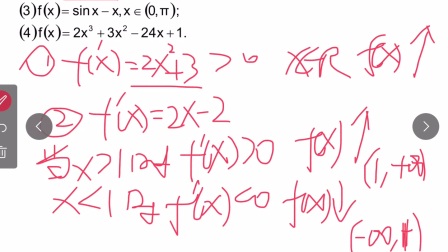 (3)f(x)=sinx-x,x∈(0,π);
(4)f(x)=2x³+3x²-24x+1.
① f'(x)=2x²+3>0 x∈R f(x)↑
② f'(x)=2x-2
当x>1时 f'(x)>0 f(x)↑ (1,+∞)
x<1时 f'(x)<0 f(x)↓ (-∞,1)